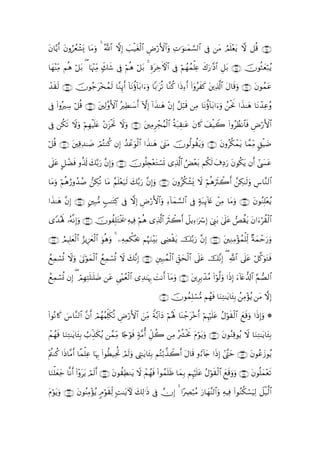 قُل لَّا يَعْلَمُ مَن فِى ٱلسَّمَٰوَٰتِ وَٱلْأَرْضِ ٱلْغَيْبَ إِلَّا ٱللَّهُ ۚ وَمَا يَشْعُرُونَ أَيَّانَ
يُبْعَثُونَ ۝ بَلِ ٱدَّٰرَكَ عِلْمُهُمْ فِى ٱلْءَاخِرَةِ ۚ بَلْ هُمْ فِى شَكٍّ مِّنْهَا ۖ بَلْ هُم مِّنْهَا
عَمُونَ ۝ وَقَالَ ٱلَّذِينَ كَفَرُوٓا۟ أَءِذَا كُنَّا تُرَٰبًا وَءَابَآؤُنَآ أَئِنَّا لَمُخْرَجُونَ ۝ لَقَدْ
وُعِدْنَا هَٰذَا نَحْنُ وَءَابَآؤُنَا مِن قَبْلُ إِنْ هَٰذَآ إِلَّآ أَسَٰطِيرُ ٱلْأَوَّلِينَ ۝ قُلْ سِيرُوا۟ فِى
ٱلْأَرْضِ فَٱنظُرُوا۟ كَيْفَ كَانَ عَٰقِبَةُ ٱلْمُجْرِمِينَ ۝ وَلَا تَحْزَنْ عَلَيْهِمْ وَلَا تَكُن فِى
ضَيْقٍ مِّمَّا يَمْكُرُونَ ۝ وَيَقُولُونَ مَتَىٰ هَٰذَا ٱلْوَعْدُ إِن كُنتُمْ صَٰدِقِينَ ۝ قُلْ
عَسَىٰٓ أَن يَكُونَ رَدِفَ لَكُم بَعْضُ ٱلَّذِى تَسْتَعْجِلُونَ ۝ وَإِنَّ رَبَّكَ لَذُو فَضْلٍ عَلَى
ٱلنَّاسِ وَلَٰكِنَّ أَكْثَرَهُمْ لَا يَشْكُرُونَ ۝ وَإِنَّ رَبَّكَ لَيَعْلَمُ مَا تُكِنُّ صُدُورُهُمْ وَمَا
يُعْلِنُونَ ۝ وَمَا مِنْ غَآئِبَةٍ فِى ٱلسَّمَآءِ وَٱلْأَرْضِ إِلَّا فِى كِتَٰبٍ مُّبِينٍ ۝ إِنَّ هَٰذَا
ٱلْقُرْءَانَ يَقُصُّ عَلَىٰ بَنِىٓ إِسْرَٰٓءِيلَ أَكْثَرَ ٱلَّذِى هُمْ فِيهِ يَخْتَلِفُونَ ۝ وَإِنَّهُۥ لَهُدًى
وَرَحْمَةٌ لِّلْمُؤْمِنِينَ ۝ إِنَّ رَبَّكَ يَقْضِى بَيْنَهُم بِحُكْمِهِۦ ۚ وَهُوَ ٱلْعَزِيزُ ٱلْعَلِيمُ ۝
فَتَوَكَّلْ عَلَى ٱللَّهِ ۖ إِنَّكَ عَلَى ٱلْحَقِّ ٱلْمُبِينِ ۝ إِنَّكَ لَا تُسْمِعُ ٱلْمَوْتَىٰ وَلَا تُسْمِعُ
ٱلصُّمَّ ٱلدُّعَآءَ إِذَا وَلَّوْا۟ مُدْبِرِينَ ۝ وَمَآ أَنتَ بِهَٰدِى ٱلْعُمْىِ عَن ضَلَٰلَتِهِمْ ۖ إِن تُسْمِعُ
إِلَّا مَن يُؤْمِنُ بِـَٔايَٰتِنَا فَهُم مُّسْلِمُونَ ۝
۞ وَإِذَا وَقَعَ ٱلْقَوْلُ عَلَيْهِمْ أَخْرَجْنَا لَهُمْ دَآبَّةً مِّنَ ٱلْأَرْضِ تُكَلِّمُهُمْ أَنَّ ٱلنَّاسَ كَانُوا۟
بِـَٔايَٰتِنَا لَا يُوقِنُونَ ۝ وَيَوْمَ نَحْشُرُ مِن كُلِّ أُمَّةٍ فَوْجًا مِّمَّن يُكَذِّبُ بِـَٔايَٰتِنَا فَهُمْ
يُوزَعُونَ ۝ حَتَّىٰٓ إِذَا جَآءُو قَالَ أَكَذَّبْتُم بِـَٔايَٰتِى وَلَمْ تُحِيطُوا۟ بِهَا عِلْمًا أَمَّاذَا كُنتُمْ
تَعْمَلُونَ ۝ وَوَقَعَ ٱلْقَوْلُ عَلَيْهِم بِمَا ظَلَمُوا۟ فَهُمْ لَا يَنطِقُونَ ۝ أَلَمْ يَرَوْا۟ أَنَّا جَعَلْنَا
ٱلَّيْلَ لِيَسْكُنُوا۟ فِيهِ وَٱلنَّهَارَ مُبْصِرًا ۚ إِنَّ فِى ذَٰلِكَ لَءَايَٰتٍ لِّقَوْمٍ يُؤْمِنُونَ ۝ وَيَوْمَ